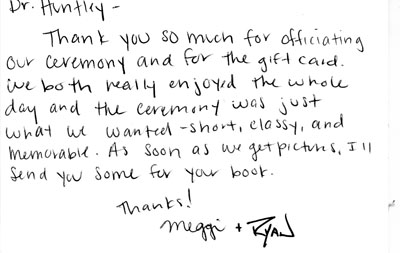 Dr. Huntley -
Thank you so much for officiating
our ceremony and for the gift card.
We both really enjoyed the whole
day and the ceremony was just
what we wanted - short, classy, and
memorable. As soon as we get pictures, I'll
send you some for your book.
Thanks!
Meggi + RYAN